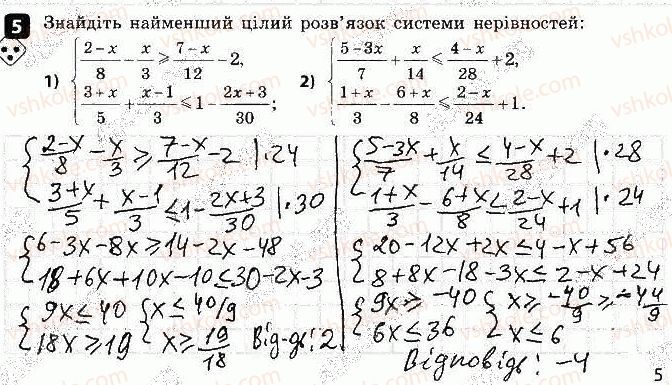 5 Знайдіть найменший цілий розв'язок системи нерівностей:
1) { (2-x)/8 - x/3 ⩾ (7-x)/12 - 2,
(3+x)/5 + (x-1)/3 ⩽ 1 - (2x+3)/30;
2) { (5-3x)/7 + x/14 ⩽ (4-x)/28 + 2,
(1+x)/3 - (6+x)/8 ⩽ (2-x)/24 + 1.
{ (2-x)/8 - x/3 ≥ (7-x)/12 - 2 |·24
(3+x)/5 + (x-1)/3 ≤ 1 - (2x+3)/30 |·30
{ 6-3x-8x ≥ 14-2x-48
18+6x+10x-10 ≤ 30-2x-3
{ 9x ≤ 40 { x ≤ 40/9
18x ≥ 19 x ≥ 19/18 Від-дь: 2
{ (5-3x)/7 + x/14 ≤ (4-x)/28 + 2 |·28
(1+x)/3 - (6+x)/8 ≤ (2-x)/24 + 1 |·24
{ 20-12x+2x ≤ 4-x+56
8+8x-18-3x ≤ 2-x+24
{ 9x ≥ -40 { x ≥ -40/9 ≥ -4 4/9
6x ≤ 36 x ≤ 6
Відповідь: -4
5
vshkole.com